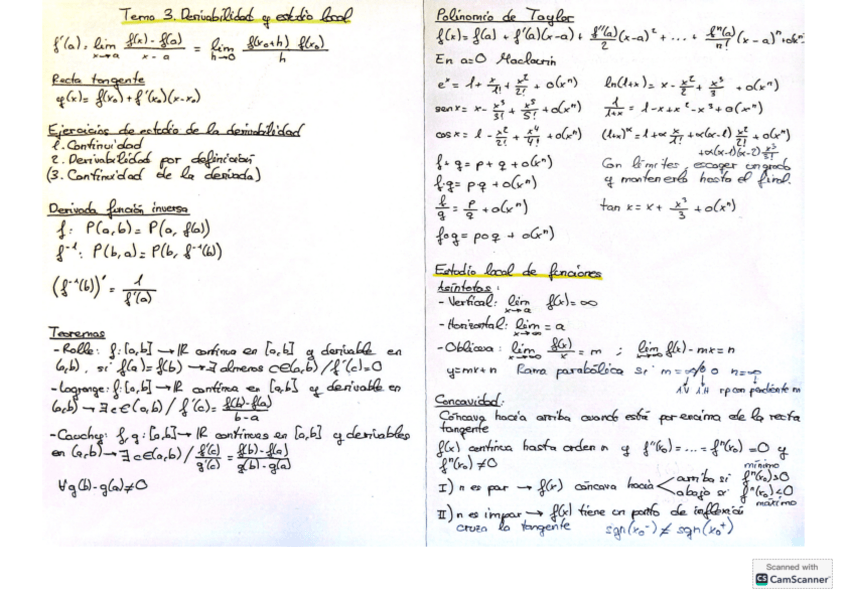 Tema 3. Derivabilidad y estudio local
f'(a) = lim x→a (f(x) - f(a))/(x - a) = lim h→0 (f(x₀+h) f(x₀))/h
Recta tangente
φ(x) = f(x₀) + f'(x₀)(x-x₀)
Ejercicios de estudio de la derivabilidad
1. Continuidad
2. Derivabilidad por definición
(3. Continuidad de la derivada)
Derivada función inversa
f: P(a,b) = P(a, f(a))
f⁻¹: P(b,a) = P(b, f⁻¹(b))
(f⁻¹(b))' = 1/f'(a)
Teoremas
- Rolle: f: [a,b] → ℝ continua en [a,b] y derivable en
(a,b), si f(a) = f(b) → ∃ almenos c∈(a,b) / f'(c) = 0
- Lagrange: f: [a,b] → ℝ continua en [a,b] y derivable en
(a,b) → ∃ c∈(a,b) / f'(c) = (f(b)-f(a))/(b-a)
- Cauchy: f, g: [a,b] → ℝ continuas en [a,b] y derivables
en (a,b) → ∃ c∈(a,b) / f'(c)/g'(c) = (f(b)-f(a))/(g(b)-g(a))
∀ g(b)-g(a) ≠ 0
Polinomio de Taylor
f(x) = f(a) + f'(a)(x-a) + f''(a)/2 (x-a)² + ... + fⁿ(a)/n! (x-a)ⁿ + o(xⁿ)
En a=0 Maclaurin
eˣ = 1 + x/1! + x²/2! + o(xⁿ)
ln(1+x) = x - x²/2 + x³/3 + o(xⁿ)
sen x = x - x³/3! + x⁵/5! + o(xⁿ)
1/(1+x) = 1 - x + x² - x³ + o(xⁿ)
cos x = 1 - x²/2! + x⁴/4! + o(xⁿ)
(1+x)^α = 1 + α x/1! + α(α-1) x²/2! + o(xⁿ)
+α(α-1)(α-2) x³/3!
f + g = p + q + o(xⁿ)
f·g = p·q + o(xⁿ)
f/g = p/q + o(xⁿ)
f∘g = p∘q + o(xⁿ)
Con límites, escoger un grado
y mantenerlo hasta el final.
tan x = x + x³/3 + o(xⁿ)
Estudio local de funciones
Asíntotas:
- Vertical: lim x→a f(x) = ∞
- Horizontal: lim x→∞ = a
- Oblicua: lim x→∞ f(x)/x = m ; lim x→∞ f(x) - mx = n
y = mx + n Rama parabólica si m = ∞/0 o n = ∞
AV AH rp con pendiente m
Concavidad:
Cóncava hacia arriba cuando está por encima de la recta
tangente
f(x) continua hasta orden n y f''(x₀) = ... = fⁿ(x₀) = 0 y
fⁿ(x₀) ≠ 0
I) n es par → f(x) cóncava hacia
mínimo
arriba si fⁿ(x₀) > 0
abajo si fⁿ(x₀) < 0
máximo
II) n es impar → f(x) tiene un punto de inflexión
cruza la tangente sgn(x₀⁻) ≠ sgn(x₀⁺)
Scanned with
CS CamScanner